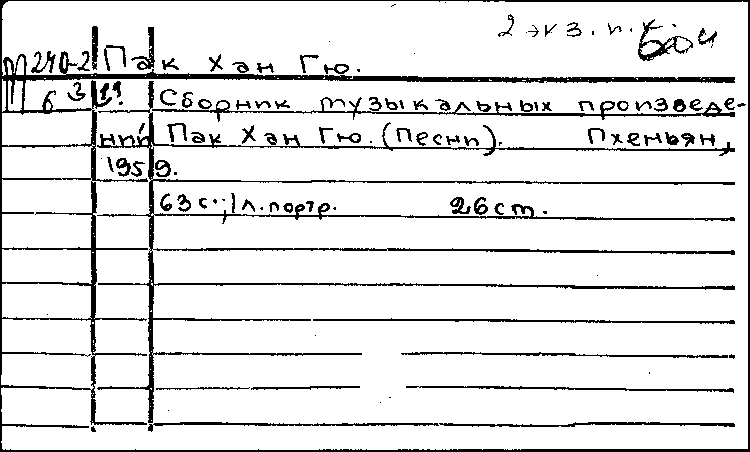 2 экз. п.к.
М 240-2 Пак Хан Гю.
6 3
Сборник музыкальных произведе-
ний Пак Хан Гю. (Песни). Пхеньян,
1959.
63 с.; 1 л. портр. 26 ст.